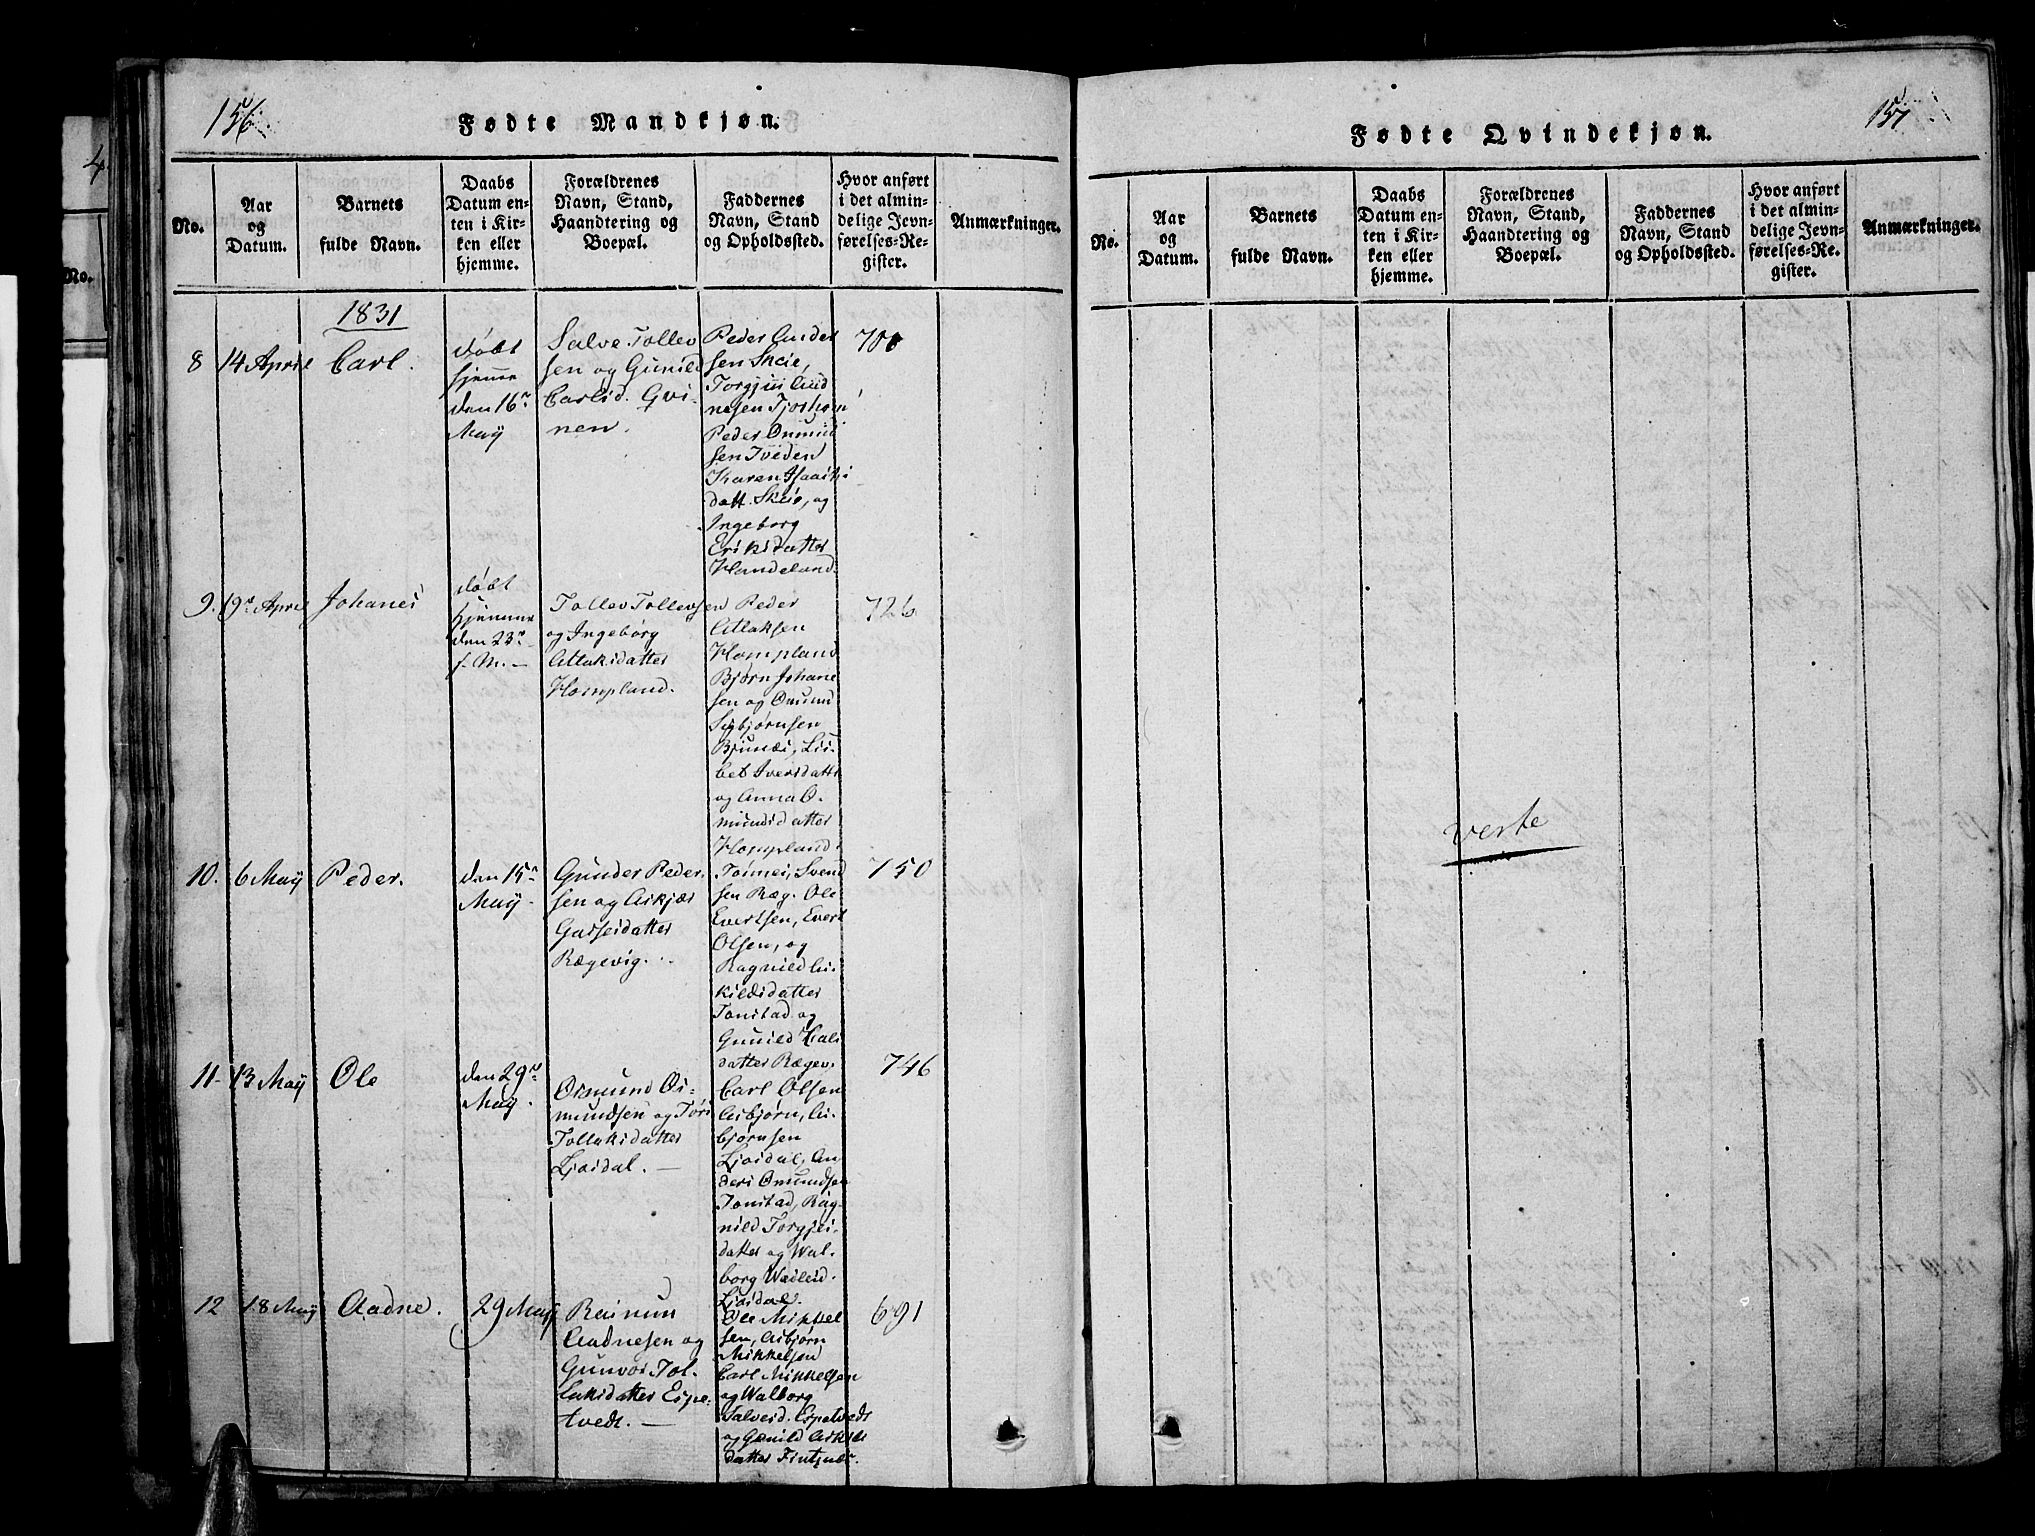 156
Fødte Mandkjøn.
No.
Aar
og
Datum.
Barnets
fulde Navn.
Daabs
Datum en-
ten i Kir-
ken eller
hjemme.
Forældrenes
Navn, Stand,
Haandtering og
Boepæl.
Faddernes
Navn, Stand
og Opholdssted.
Hvor anført
i det almin-
delige Jevn-
førelses-Re-
gister.
Anmærkninger.
1831
8
14 April
Carl.
døbt
hjemme
den 16de
Maÿ
Salve Tollev
sen og Gunild
Carlsd. Qvi-
nen.
Peder Ander
sen Skeie,
Torgjus And
nesen Tjorhom
Peder Omund
sen Tveden
Karen Isaachs
datt. Skeie, og
Ingeborg
Eriksdatter
Handeland.
700
9.
19de April
Johanes
døbt
hjemme
den 23de
s. M. —
Tollev Tollevsen
og Ingeborg
Atlaksdatter
Hompland.
Peder
Atlaksen
Hompland
Bjørn Johane
sen og Omund
Sigbjørnsen
Bjunes, Lis-
bet Iversdatter
og Anna O-
mundsdatter
Hompland.
726
10.
6 Maÿ
Peder.
den 15de
Maÿ.
Gunder Peder
sen og Askjær
Gasseidatter
Rægevig.
Tønnes, Svend
sen Ræg. Ole
Evertsen, Evert
Olsen, og
Ragnild As-
kildsdatter
Tonstad og
Gunild
datter Rægev.
750
11.
13 Maÿ
Ole
den 29de
Maÿ.
Osmund Os-
mundsen og Tøri
Tollaksdatter
Ljosdal. —
Carl Olsen
Asbjørn, As-
bjørnsen
Ljosdal, An
ders Omundsen
Tonstad, Rag-
nild Torgjei-
datter og Wal-
borg
Ljosdal.
746
12
18 Maÿ
Aadne.
29 Maÿ
Rasmus
Aadnesen og
Gunvor Tol-
laksdatter Espe-
tvedt. —
Ole Mikkel
sen, Asbjørn
Mikkelsen
Carl Mikkelsen
og Walborg
Salvesd. Espetvedt
og Gunild Aslaks
datter
691
157
Fødte Qvindekjøn.
No.
Aar
og
Datum.
Barnets
fulde Navn.
Daabs
Datum en-
ten i Kir-
ken eller
hjemme.
Forældrenes
Navn, Stand,
Haandtering og
Boepæl.
Faddernes
Navn, Stand
og Opholdssted.
Hvor anført
i det almin-
delige Jevn-
førelses-Re-
gister.
Anmærkninger.
verte
4
No.